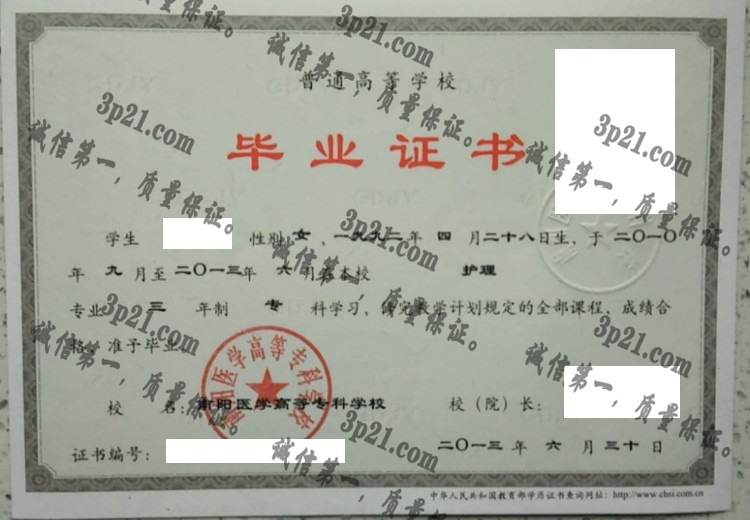 普通高等学校
毕业证书
学生 性别 女，一九九二年 四 月二十八日生，于 二〇一〇
年 九 月至二〇一三年 六 月在本校 护理
专业 三 年制 专 科学习，修完教学计划规定的全部课程、成绩合
格，准予毕业。
校 名：南阳医学高等专科学校 校（院）长：
南阳医学高等专科学校
二〇一三年 六 月 三十 日
证书编号：
中华人民共和国教育部学历证书查询网址：http://www.chsi.com.cn
3p21.com
诚信第一，质量保证。
3p21.com
诚信第一，质量保证。
3p21.com
诚信第一，质量保证。
3p21.com
诚信第一，质量保证。
3p21.com
诚信第一，质量保证。
3p21.com
诚信第一，质量保证。
3p21.com
诚信第一，质量保证。
3p21.com
诚信第一，质量保证。